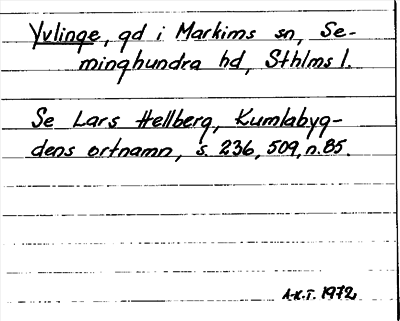 Yvlinge, gd i Markims sn, Se-
minghundra hd, Sthlms l.
Se Lars Hellberg, Kumlabyg-
dens ortnamn, s. 236, 509, n. 85.
A-K.T. 1972